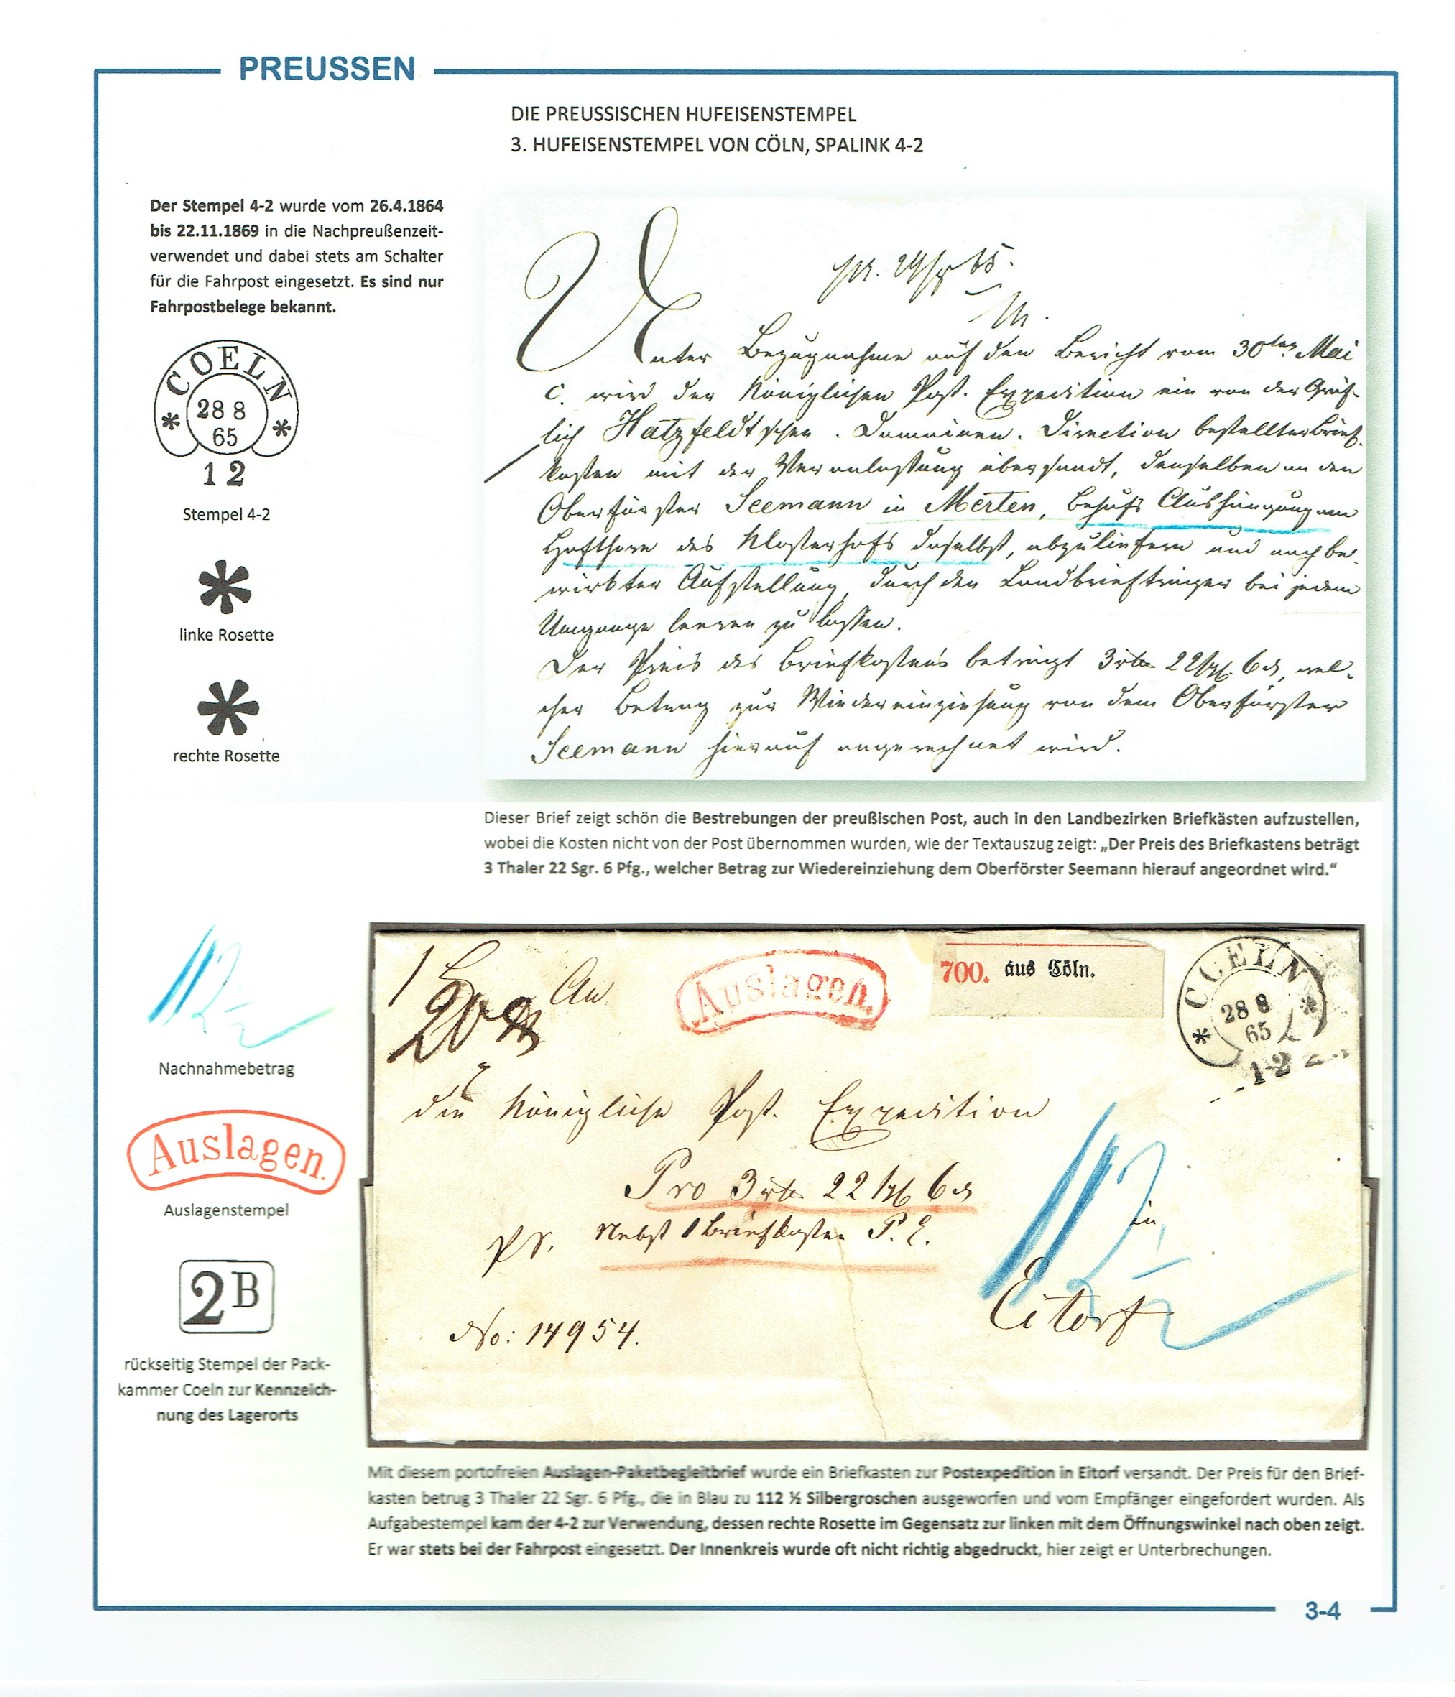 PREUSSEN
DIE PREUSSISCHEN HUFEISENSTEMPEL
3. HUFEISENSTEMPEL VON CÖLN, SPALINK 4-2
Der Stempel 4-2 wurde vom 26.4.1864
bis 22.11.1869 in die Nachpreußenzeit-
verwendet und dabei stets am Schalter
für die Fahrpost eingesetzt. Es sind nur
Fahrpostbelege bekannt.
COELN
28 8
65
1 2
Stempel 4-2
linke Rosette
rechte Rosette
Unter Bezugnahme auf den Bericht vom 30ten Mai
c. wird der Königlichen Post-Expedition ein von der Gräf-
lich Hatzfeldt'schen Domainen-Direction bestellter Brief-
kasten mit der Veranlassung übersandt, denselben an den
Oberförster Seemann in Merten, behufs Aushängung am
Hofthore des Klosterhofs daselbst, abzuliefern und nach be-
wirkter Aufstellung, durch den Landbriefträger bei jedem
Umgange leeren zu lassen.
Der Preis des Briefkastens beträgt 3 rtr 22 sg 6 d, wel-
cher Betrag zur Wiedereinziehung von dem Oberförster
Seemann hierauf angerechnet wird.
Dieser Brief zeigt schön die Bestrebungen der preußischen Post, auch in den Landbezirken Briefkästen aufzustellen,
wobei die Kosten nicht von der Post übernommen wurden, wie der Textauszug zeigt: „Der Preis des Briefkastens beträgt
3 Thaler 22 Sgr. 6 Pfg., welcher Betrag zur Wiedereinziehung dem Oberförster Seemann hierauf angeordnet wird.“
112½
Nachnahmebetrag
Auslagen.
Auslagenstempel
2B
rückseitig Stempel der Pack-
kammer Coeln zur Kennzeich-
nung des Lagerorts
An
Auslagen.
700. aus Cöln.
COELN
28 8
65
1-2
die Königliche Post-Expedition
Pro 3 rtr 22 sg 6 d
nebst 1 Briefkasten P. E.
in
112½
Eitorf
No: 14954.
Mit diesem portofreien Auslagen-Paketbegleitbrief wurde ein Briefkasten zur Postexpedition in Eitorf versandt. Der Preis für den Brief-
kasten betrug 3 Thaler 22 Sgr. 6 Pfg., die in Blau zu 112 ½ Silbergroschen ausgeworfen und vom Empfänger eingefordert wurden. Als
Aufgabestempel kam der 4-2 zur Verwendung, dessen rechte Rosette im Gegensatz zur linken mit dem Öffnungswinkel nach oben zeigt.
Er war stets bei der Fahrpost eingesetzt. Der Innenkreis wurde oft nicht richtig abgedruckt, hier zeigt er Unterbrechungen.
3-4